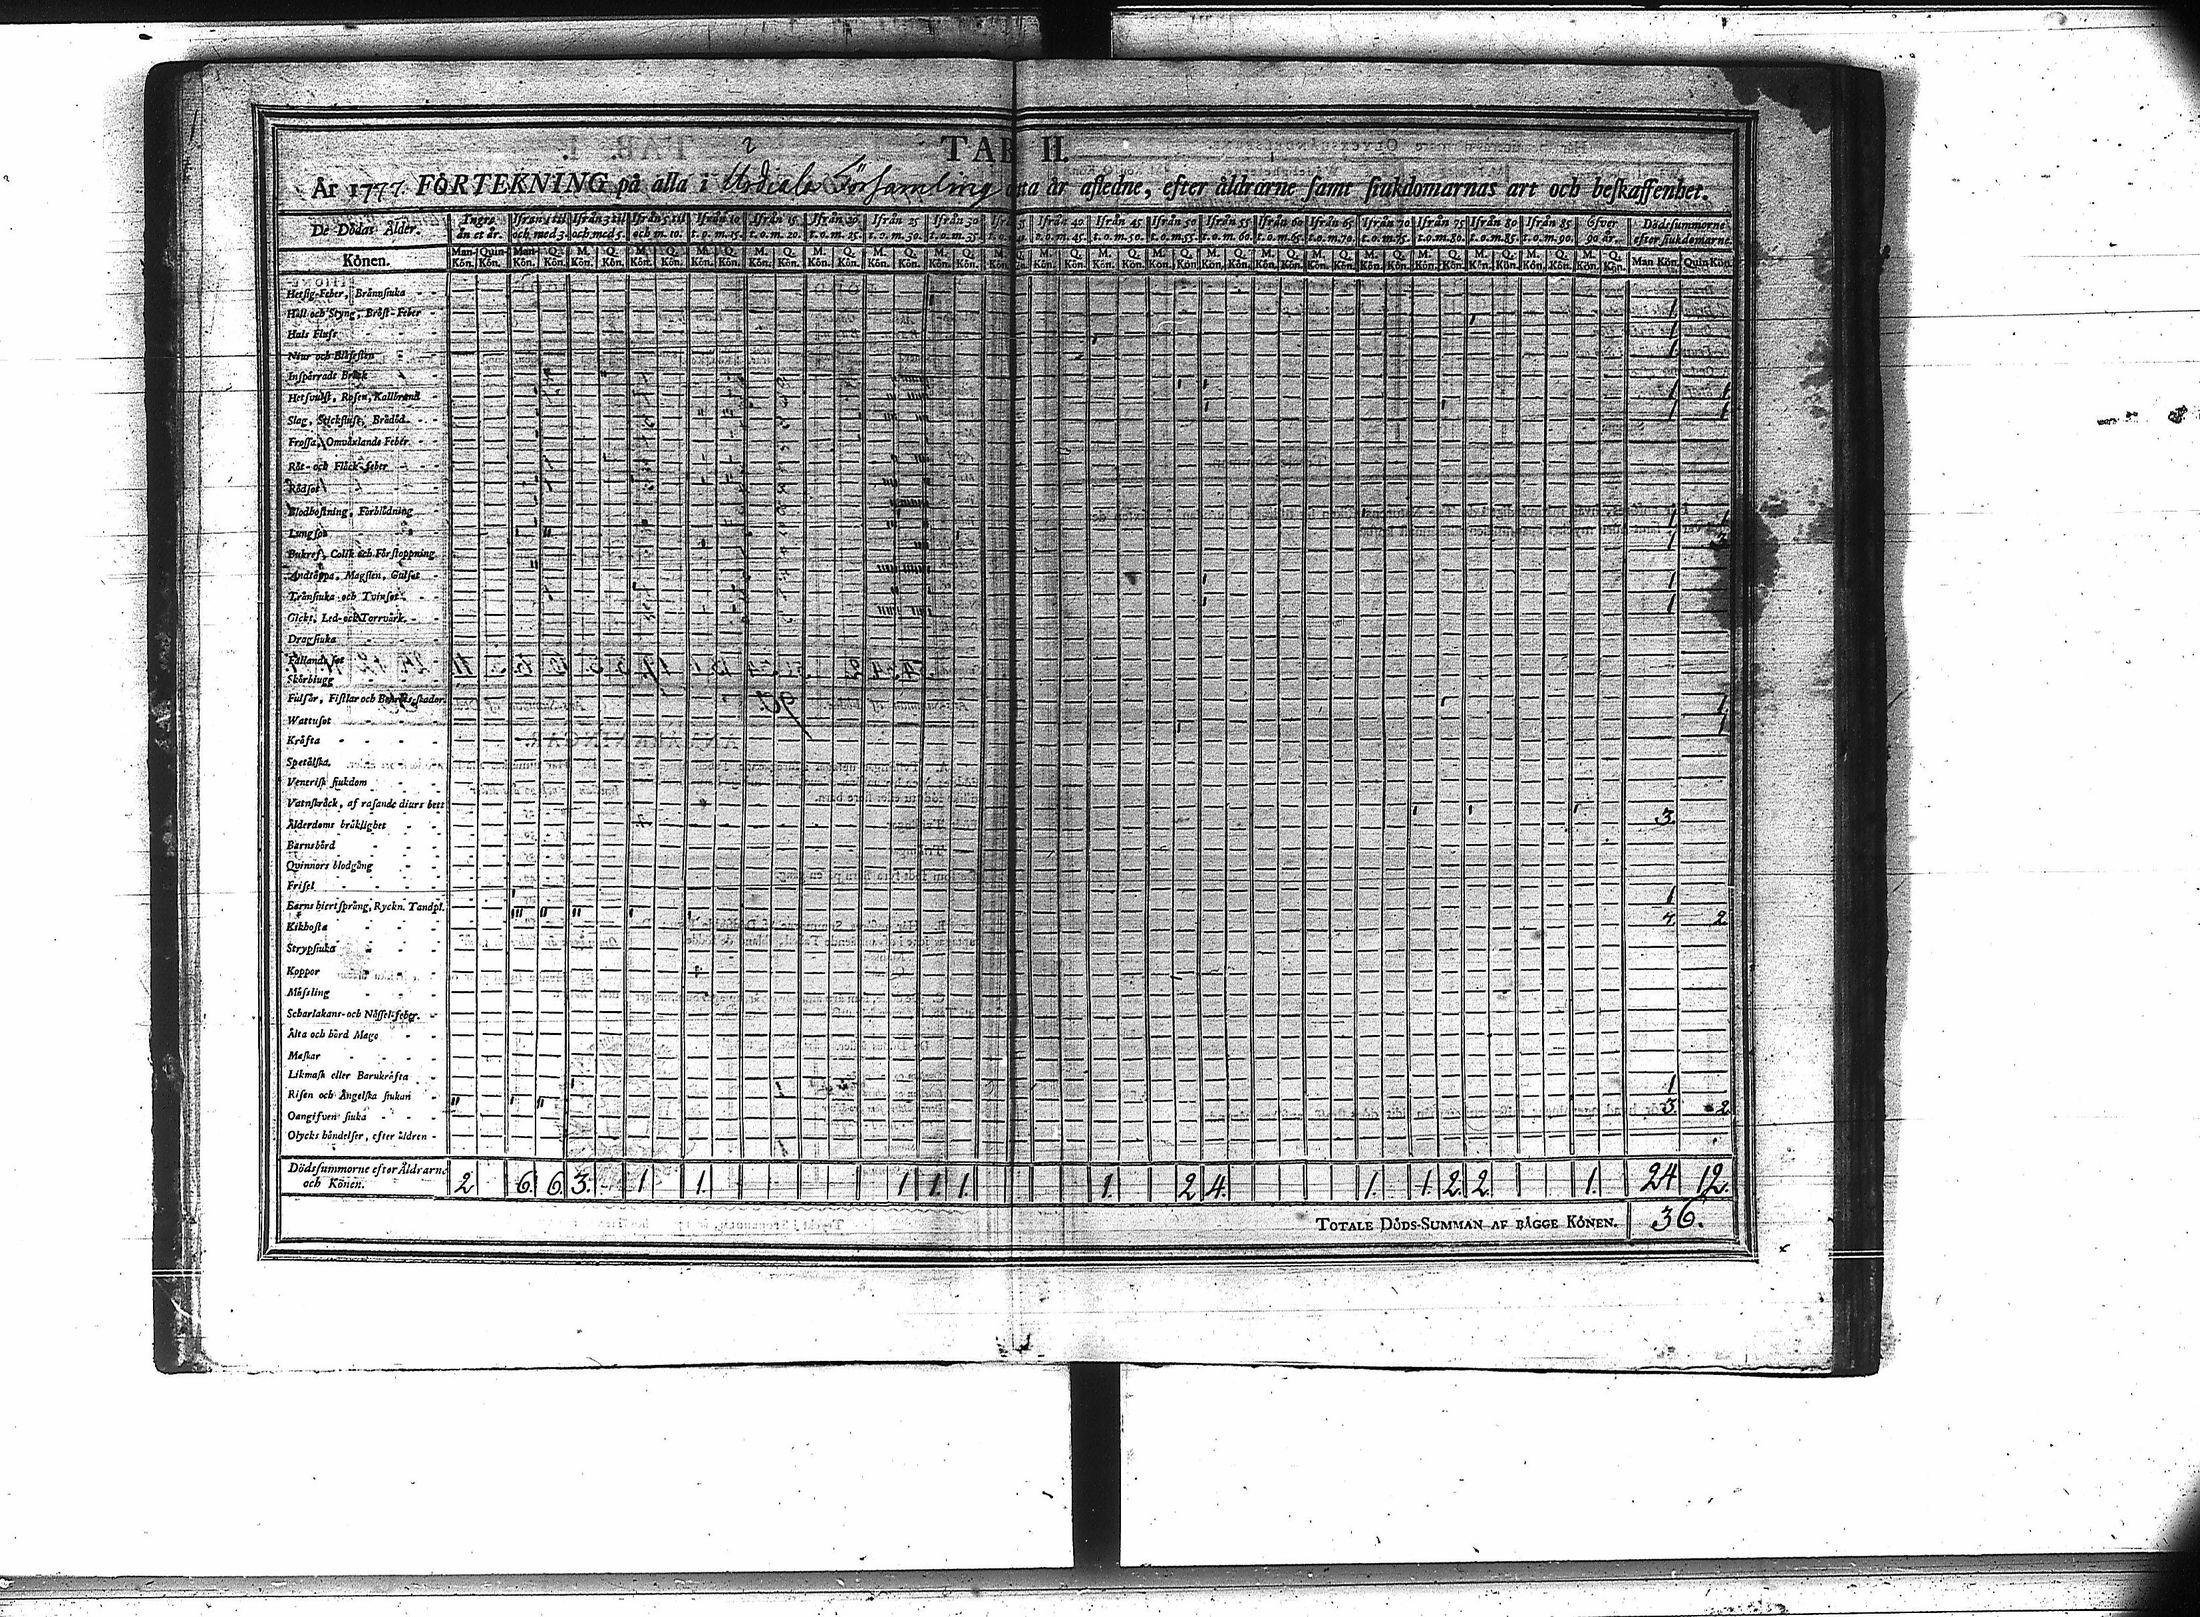 TAB II.
År 1777. FÖRTEKNING på alla i Urdiala Församling detta år afledne, efter åldrarne samt siukdomarnas art och beskaffenhet.
De Dödas Ålder. Ingre än et år. Ifrån 1 til och med 3. Ifrån 3 til och med 5. Ifrån 5 til och m. 10. Ifrån 10 t. o. m. 15. Ifrån 15 t. o. m. 20. Ifrån 20 t. o. m. 25. Ifrån 25 t. o. m. 30. Ifrån 30 t. o. m. 35. Ifrån 40 t. o. m. 45. Ifrån 45 t. o. m. 50. Ifrån 50 t. o. m. 55. Ifrån 55 t. o. m. 60. Ifrån 60 t. o. m. 65. Ifrån 65 t. o. m. 70. Ifrån 70 t. o. m. 75. Ifrån 75 t. o. m. 80. Ifrån 80 t. o. m. 85. Ifrån 85 t. o. m. 90. Öfver 90 år. Dödssummorne efter siukdomarne.
Könen. Man Kön. Quin Kön.
Hetsig-Feber, Brännsiuka 1
Håll och Styng, Bröst-Feber 1
Hals Fluss 1
Niur och Blåsesten
Inspärradt Bråck 1 1
Hetsvulst, Rosen, Kallbrand 1 1
Slag, Stickfluss, Brådöd
Frossa, Omväxlande Feber
Röt- och Fläck-feber
Rödsot
Blodhostning, Förblödning 1 1
Lungsot 1
Bukref, Colik och Förstoppning
Andtäppa, Magsten, Gulsot 1
Trånsiuka och Tvinsot 1
Gickt, Led- och Torrvärk
Dragsiuka
Fallandesot
Skörbiugg
Fulsår, Fistlar och Benröts-skador 1
Wattusot 1
Kräfta
Spetälska.
Venerisk siukdom
Vatnskräck, af rasande diurs bett
Ålderdoms bräklighet 3.
Barnsbörd
Qvinnors blodgång
Frisel
Barns hiertsprång, Ryckn. Tandpl. 1
Kikhosta 7 2
Strypsiuka
Koppor
Mässling
Scharlakans- och Nässel-feber.
Älta och hård Mage
Maskar
Likmask eller Barnkräfta
Risen och Ängelska siukan 1
Oangifven siuka 3 2
Olycks händelser, efter åldren
Dödssummorne efter Åldrarne och Könen. 2 6. 6. 3. 1 1. 1 1. 1. 1. 2 4. 1. 1. 2. 2. 1. 24 12.
TOTALE DÖDS-SUMMAN AF BÄGGE KÖNEN. 36.